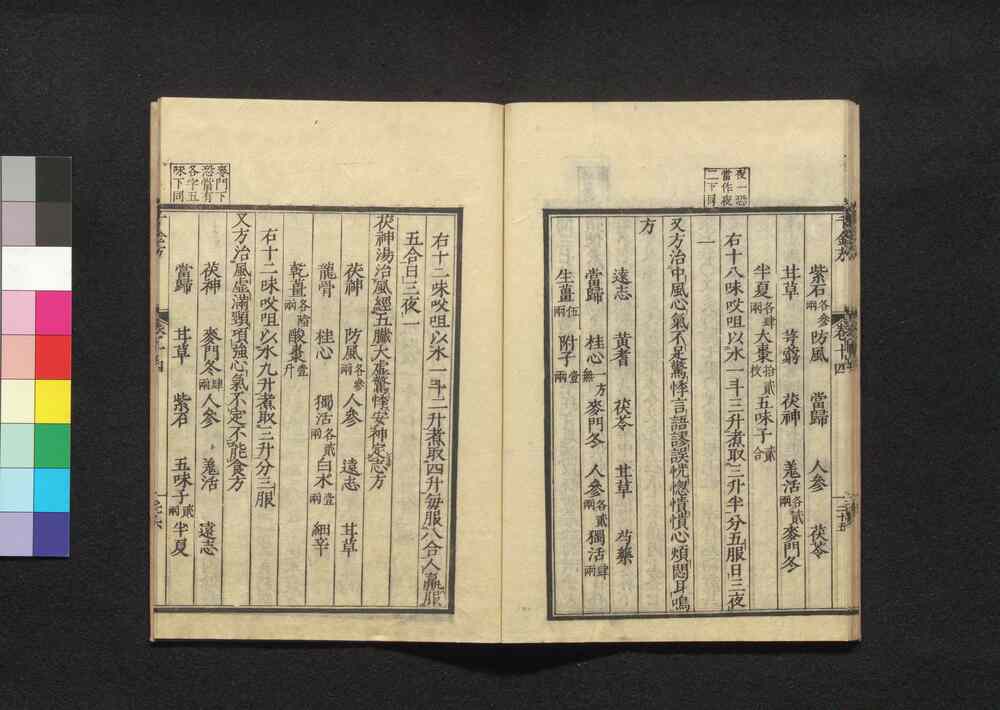 夜一恐
當作夜
二下同
千金方
卷十四
二十五
紫石 各參兩 防風 當歸 人參 茯苓
甘草 芎藭 茯神 羗活 各貳兩 麥門冬
半夏 各肆兩 大棗 拾貳枚 五味子 貳合
右十八味㕮咀以水一斗三升煮取三升半分五服日三夜
一
又方治中風心氣不足驚悸言語謬誤恍惚憒憒心煩悶耳鳴
方
遠志 黃耆 茯苓 甘草 芍藥
當歸 桂心 一方無 麥門冬 人參 各貳兩 獨活 肆兩
生薑 伍兩 附子 壹兩
右十二味㕮咀以水一斗二升煮取四升每服八合人羸服
五合日三夜一
茯神湯治風經五臟大虛驚悸安神定志方
茯神 防風 各參兩 人參 遠志 甘草
龍骨 桂心 獨活 各貳兩 白朮 壹兩 細辛
乾薑 各陸兩 酸棗 壹升
右十二味㕮咀以水九升煮取三升分三服
又方治風虛滿頸項強心氣不定不能食方
茯神 麥門冬 肆兩 人參 羗活 遠志
當歸 甘草 紫石 五味子 貳兩 半夏
麥門下
恐當有
各字五
味下同